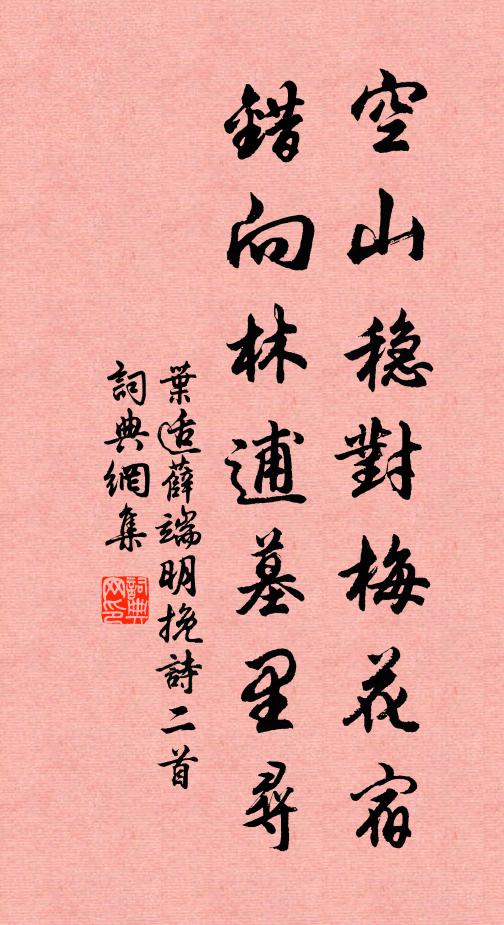 空山穏對梅花宿
錯向林逋墓里尋
葉适薛端明挽詩二首
詞典網集
詞典網印